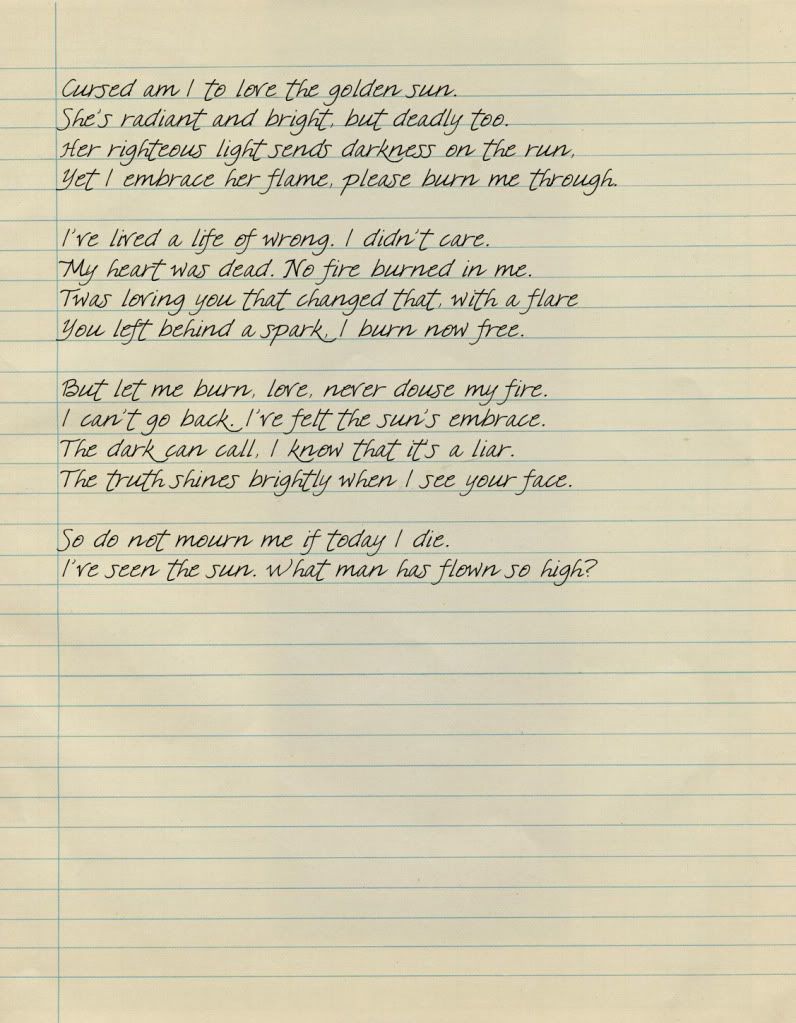 Cursed am I to love the golden sun.
She's radiant and bright, but deadly too.
Her righteous light sends darkness on the run,
Yet I embrace her flame, please burn me through.
I've lived a life of wrong. I didn't care.
My heart was dead. No fire burned in me.
Twas loving you that changed that, with a flare
You left behind a spark, I burn now free.
But let me burn, love, never douse my fire.
I can't go back. I've felt the sun's embrace.
The dark can call, I know that it's a liar.
The truth shines brightly when I see your face.
So do not mourn me if today I die.
I've seen the sun. What man has flown so high?